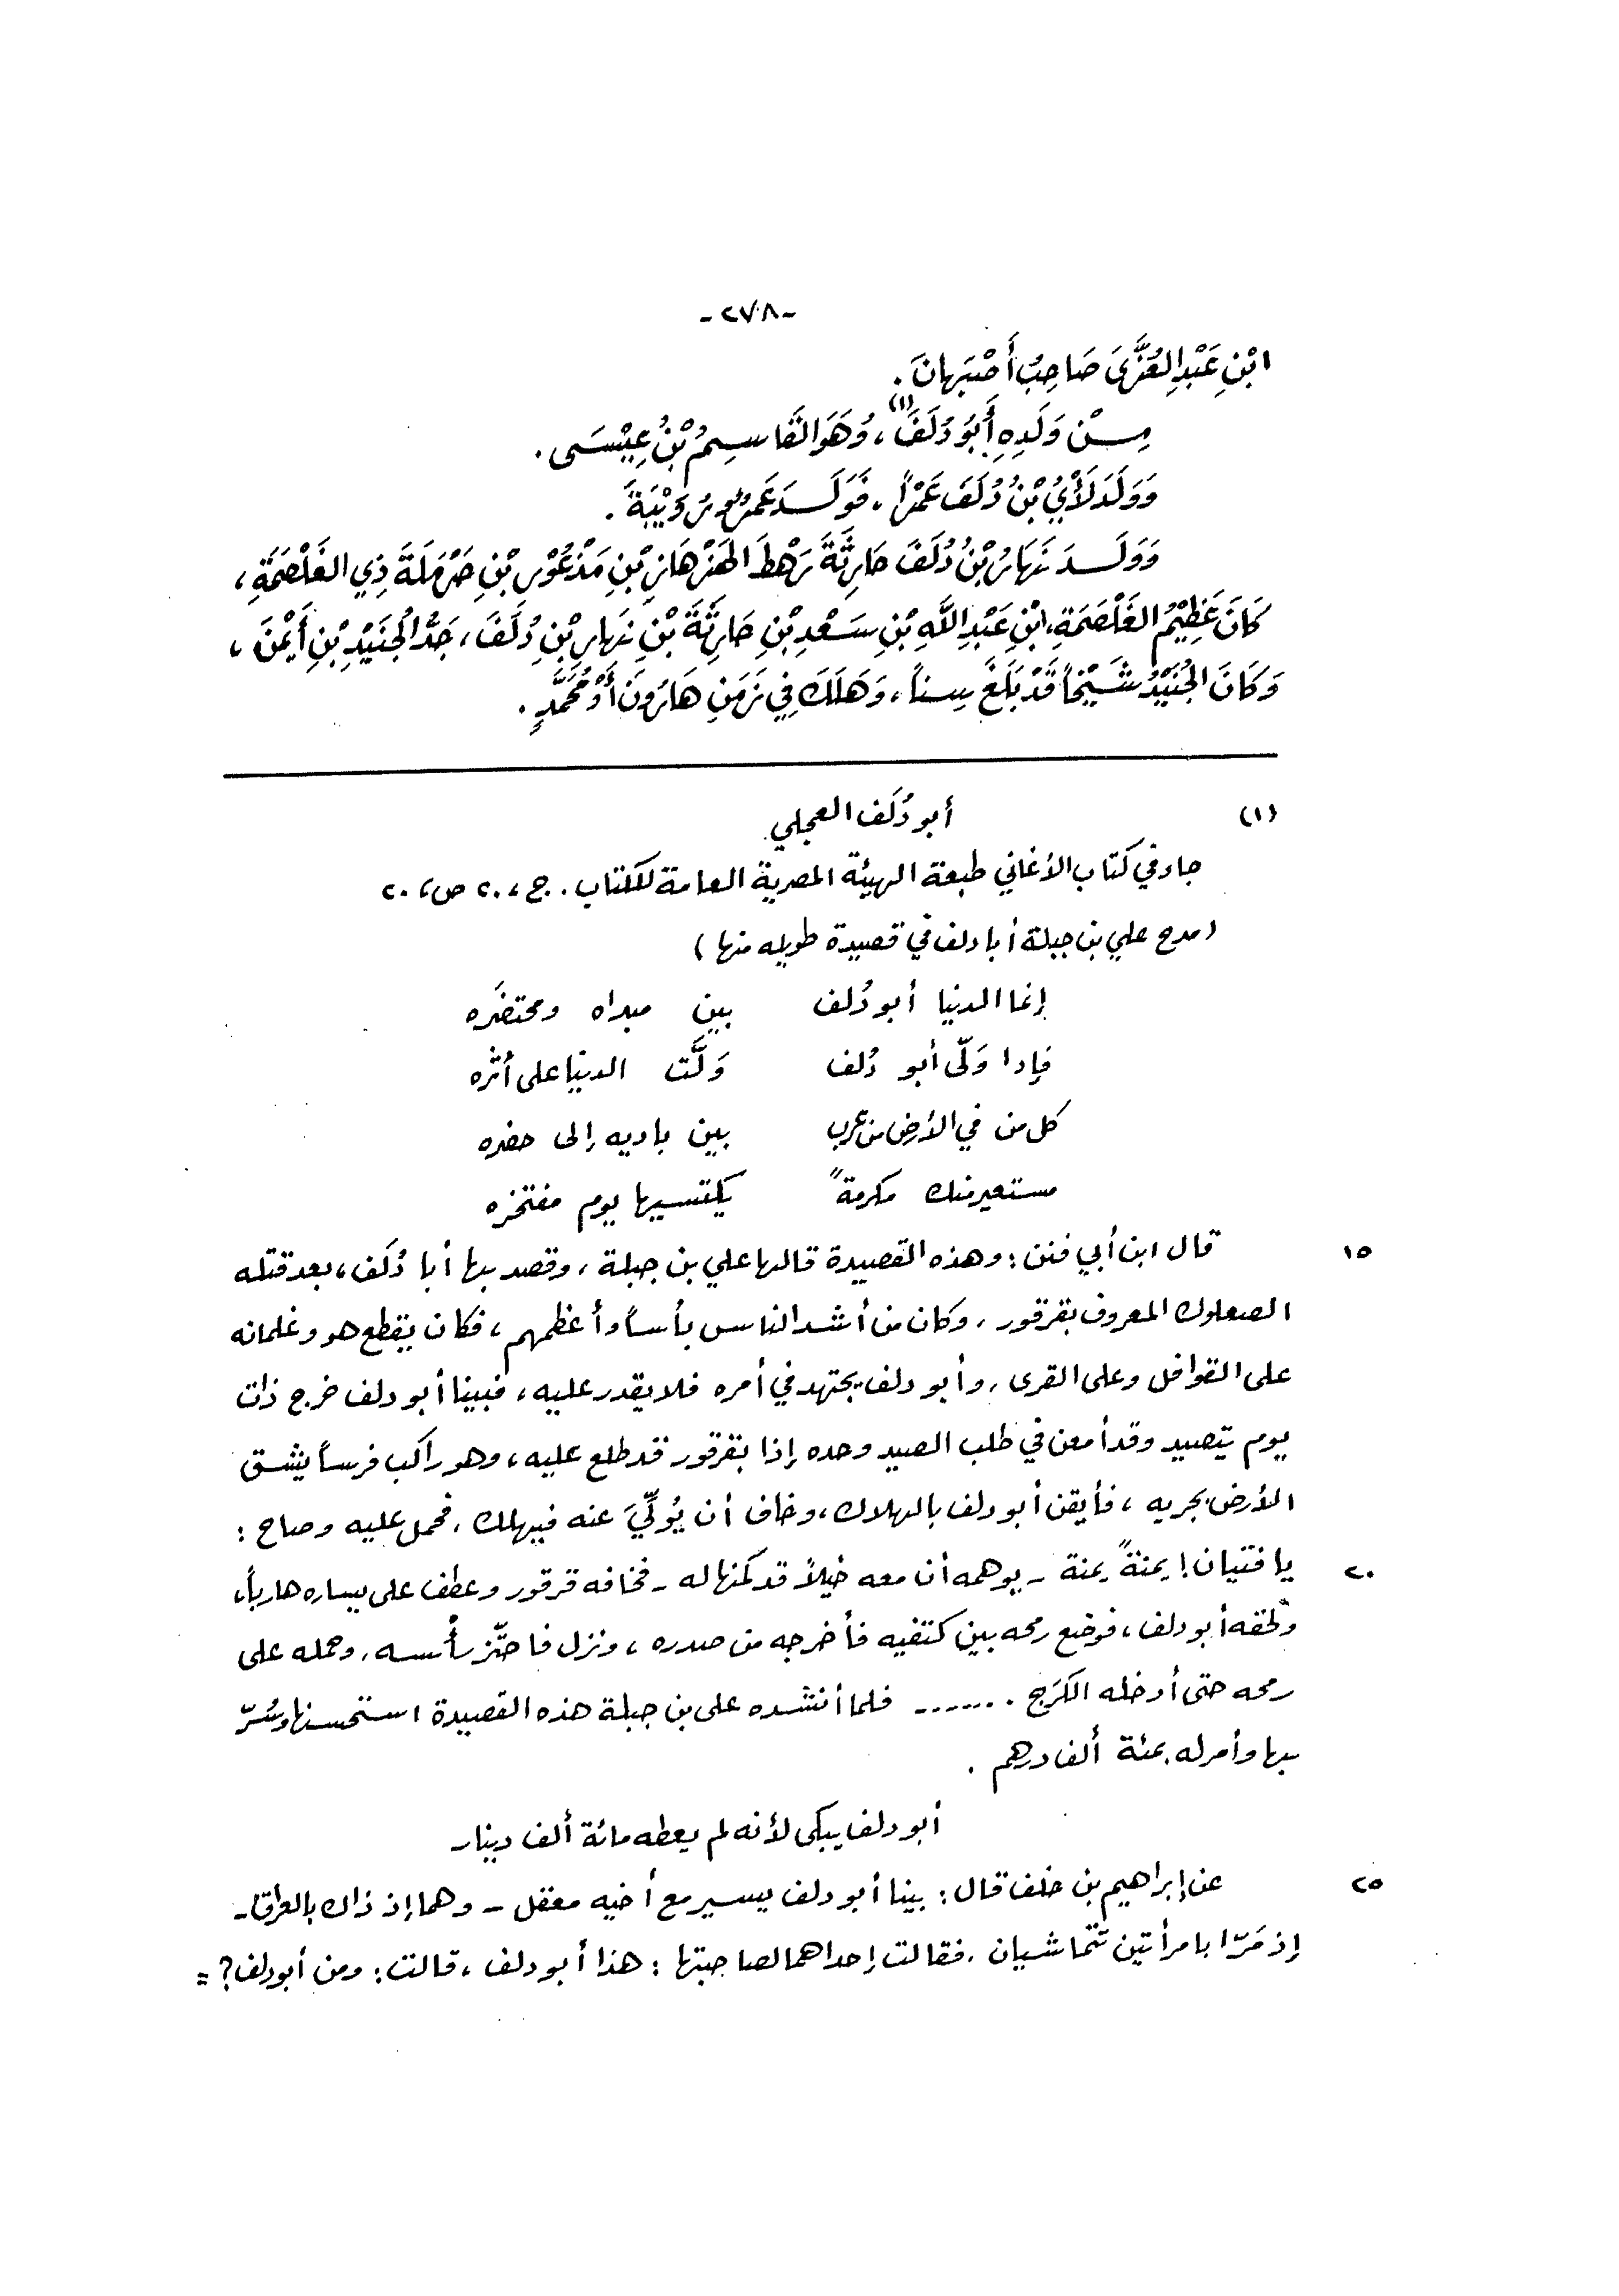 -٢٧٨-
ابْنِ عَبْدِ العُزَّى صَاحِبُ أَصْبَهانَ.
مِنْ وَلَدِهِ أَبُو دُلَفَ(١)، وَهَوَ القَاسِمُ بْنُ عِيْسَى.
وَوَلَدَ لَأْيُ بْنُ دُلَفَ عَمْراً، فَوَلَدَ عَمْرٌو رُوَيْبَةَ.
وَوَلَدَ نَهَارُ بْنُ دُلَفَ حَارِثَةَ رَهْطَ الهَزْهَازِ بْنِ مَذْعُوْرِ بْنِ حَرْمَلَةَ ذِي الغَلْصَمَةِ،
كَانَ عَظِيْمُ الغَلْصَمَةِ، ابْنِ عَبْدِ اللَّهِ بْنِ سَعْدِ بْنِ حَارِثَةَ بْنِ نَهارِ بْنِ دُلَفَ، جَدُّ الجُنَيْدِ بْنِ أَيْمَنَ،
وَكَانَ الجُنَيْدُ شَيْخاً قَدْ بَلَغَ سِناً، وَهَلَكَ فِي زَمَنِ هَارُونَ أَوْ مُحَمَّدٍ.
(١) أبو دُلَف العجلي
جاء في كتاب الأغاني طبعة الهيئة المصرية العامة للكتاب. ج، ٢٠ ص، ٢٠
(مدح علي بن جبلة أبا دلف في قصيدة طويله منها)
إنما الدنيا أبو دُلف بين مبداه ومحتضَره
فإدا وَلّى أبو دُلف وَلَّت الدنيا على أثره
كل من في الأرض من عرب بين باديه إلى حضره
مستعير منك مكرمةً يكتسيها يوم مفتخره
١٥ قال ابن أبي فنن: وهذه القصيدة قالها علي بن جبلة، وقصد بها أبا دُلَف، بعد قتله
الصعلوك المعروف بقرقور، وكان من أشد الناس بأساً وأعظمهم، فكان يقطع هو وغلمانه
على القوافل وعلى القرى، وأبو دلف يجتهد في أمره فلا يقدر عليه، فبينا أبو دلف خرج ذات
يوم يتصيد وقد أمعن في طلب الصيد وحده إذا بقرقور قد طلع عليه، وهو راكب فرساً يشق
الأرض بجريه، فأيقن أبو دلف بالهلاك، وخاف أن يُولِّيَ عنه فيهلك، فحمل عليه وصاح:
٢٠ يا فتيان! يمنةً يمنة - يوهمه أن معه خيلاً قد كمنها له - فخافه قرقور وعطف على يساره هارباً،
ولحقه أبو دلف، فوضع رمحه بين كتفيه فأخرجه من صدره، ونزل فاحتّز رأسه، وحمله على
رمحه حتى أدخله الكَرَج ....... فلما أنشده على بن جبلة هذه القصيدة استحسنها وسُرّ
بها وأمر له بمئة ألف درهم.
أبو دلف يبكى لأنه لم يعطه مائة ألف دينار
٢٥ عن إبراهيم بن خلف قال: بينا أبو دلف يسير مع أخيه معقل - وهما إذ ذاك بالعراق -
إذ مَرّا بامرأتين تتماشيان، فقالت إحداهما لصاحبتها: هذا أبو دلف، قالت: ومن أبو دلف؟ =